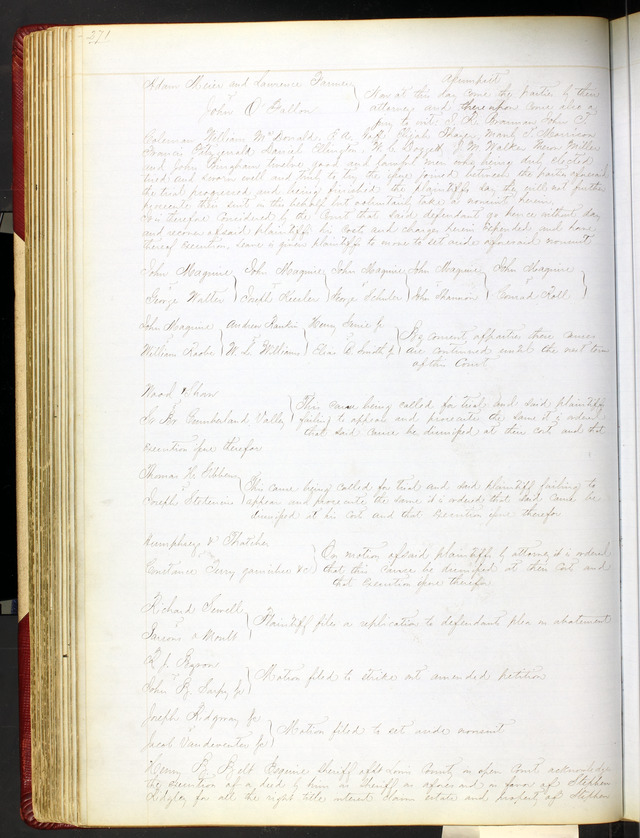 271
Adam Meier and Lawrence Farmer Assumpsit
vs Now at this day come the parties by their
John O'Fallon attorneys and thereupon come also a
jury to wit: Bowman John C
Coleman William McDonald Elijah Thayer Mark T Morrison
Francis Fitzgerald David Ellington W L Doggett J M Walker Miller
and John Bingham twelve good and lawful men who being duly elected
tried and sworn well and truly to try the issue joined between the parties aforesaid
the trial progressed and being finished the plaintiffs say they will not further
prosecute this suit in this behalf but voluntarily take a nonsuit herein.
It is therefore considered by the Court that said defendant go hence without day
and recover of said plaintiffs his costs and charges herein expended and have
thereof execution, leave is given plaintiffs to move to set aside aforesaid nonsuit
John Maguire John Maguire John Maguire John Maguire John Maguire
vs vs vs vs vs
George Walter Joseph Kessler George Schuler John Shannon Conrad Roll
John Maguire Andrew Rankin Henry Senie Jr
vs vs vs By consent of parties these causes
William Roobe W L Williams Elias B Smith Jr are continued until the next term
of this Court
Wood & Shaw
vs This cause being called for trial and said plaintiffs
St Br Cumberland Valley failing to appear and prosecute the same it is ordered
that said cause be dismissed at their cost and that
execution issue therefor
Thomas H Gibbons
vs This cause being called for trial and said plaintiff failing to
Joseph Stetinius appear and prosecute the same it is ordered that said cause be
dismissed at his cost and that execution issue therefor
Humphreys & Thatcher
vs On motion of said plaintiffs by attorney it is ordered
Constance Terry garnishee &c that this cause be dismissed at their cost and
that execution issue therefor
Richard Sewell
vs Plaintiff files a replication to defendants plea in abatement
Parsons & Moult
L J Byson
vs Motion filed to strike out amended petition
John B Sarpy Jr
Joseph Ridgway Jr
vs Motion filed to set aside nonsuit
Jacob Vandeventer Jr
Henry B Belt Esquire Sheriff of St Louis County in open Court acknowledges
the execution of a deed by him as Sheriff as aforesaid in favor of Stephen
Ridgley for all the right title interest claim estate and property of Stephen